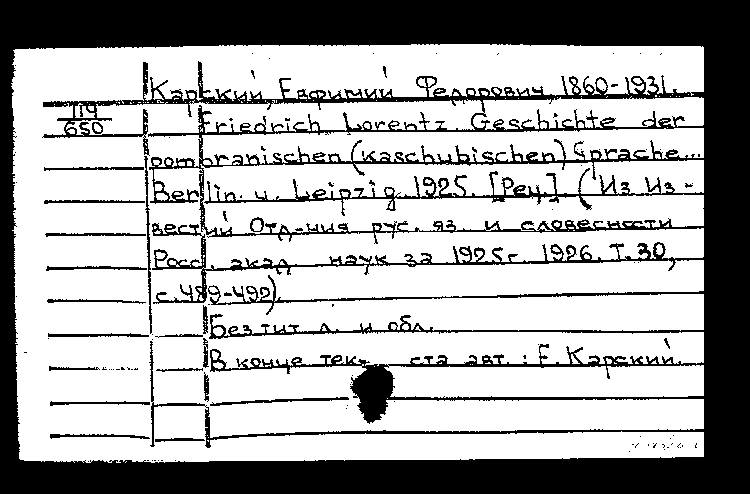 Карский, Евфимий Федорович, 1860-1931.
119
650
Friedrich Lorentz. Geschichte der
pombranischen (kaschubischen) Sprache...
Berlin. u. Leipzig. 1925. [Рец.] (Из Из-
вестий Отд-ния рус. яз. и словесности
Росс. акад. наук за 1925г. 1926. Т. 30,
с. 489-492).
Без тит. л. и обл.
В конце тек- ста авт.: Е. Карский.